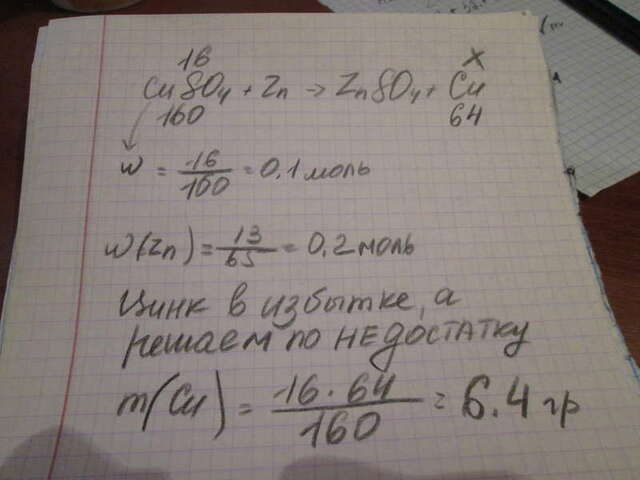 16 x
CuSO4 + Zn → ZnSO4 + Cu
160 64
w = 16/160 = 0,1 моль
w(Zn) = 13/65 = 0,2 моль
Цинк в избытке, а
решаем по НЕДОСТАТКУ
m(Cu) = 16·64/160 = 6.4 гр